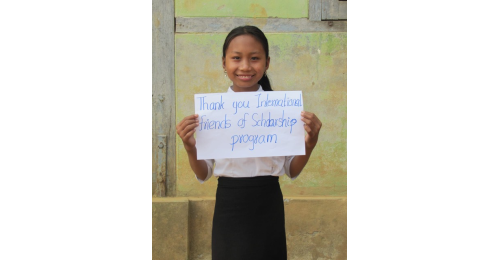 Thank you International
friends of Scholarship
program